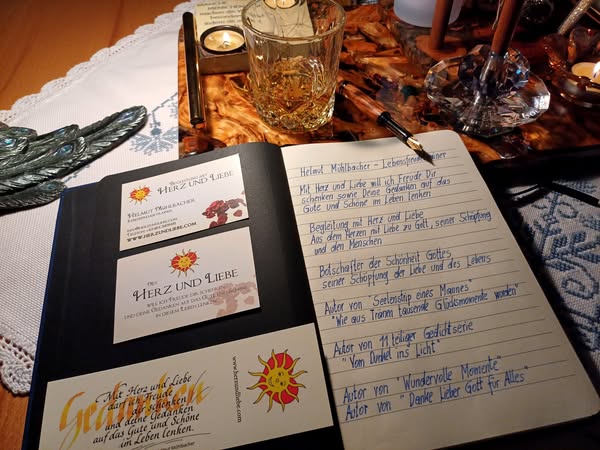 Begleitung mit
Herz und Liebe
Helmut Mühlbacher
www.herzundliebe.com
Mit
Herz und Liebe
will ich Freude dir schenken
und deine Gedanken auf das Gute und Schöne
in diesem Leben lenken.
Gedanken
Mit Herz und Liebe
darf ich Freude
dir schenken
und deine Gedanken
auf das Gute und Schöne
im Leben lenken.
Helmut Mühlbacher
www.herzundliebe.com
Helmut Mühlbacher - 
Mit Herz und Liebe will ich Freude Dir
schenken sowie Deine Gedanken auf das
Gute und Schöne im Leben lenken
Begleitung mit Herz und Liebe
Aus dem Herzen mit Liebe zu Gott, seiner Schöpfung
und den Menschen
Botschafter der Schönheit Gottes,
seiner Schöpfung der Liebe und des Lebens
Autor von "Seelenstrip eines Mannes"
"Wie aus Tränen tausende Glücksmomente wurden"
Autor von 11 teiliger Gedichtserie
"Vom Dunkel ins Licht"
Autor von "Wundervolle Momente"
Autor von "Danke Lieber Gott für Alles"